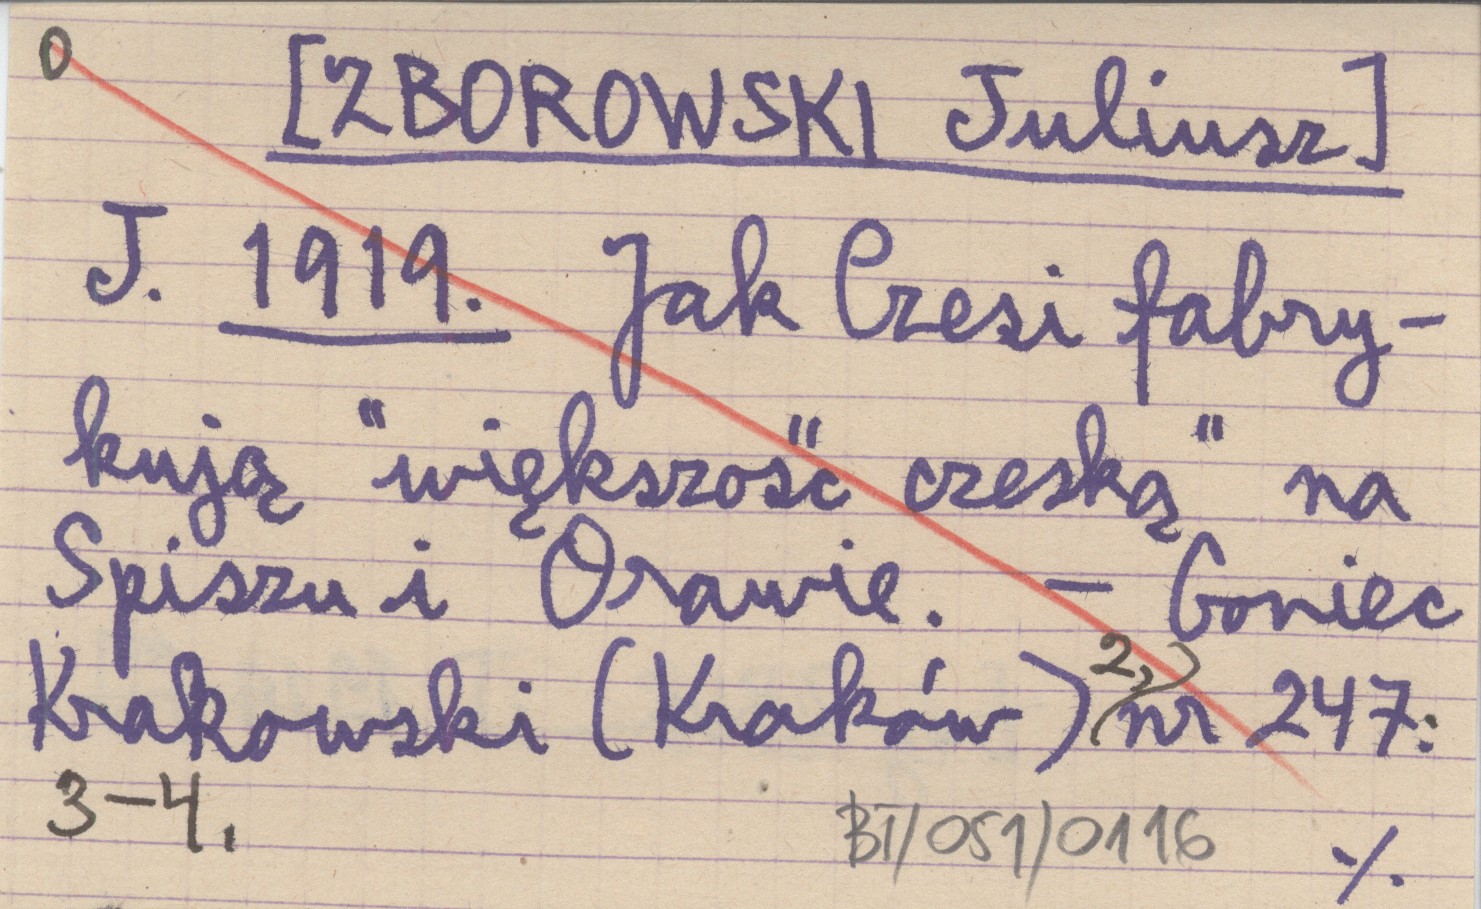 0
[ZBOROWSKI Juliusz]
J. 1919. Jak Czesi fabry-
kują "większość czeską" na
Spiszu i Orawie. - Goniec
Krakowski (Kraków) 2, nr 247:
3-4.
BI/051/0116
·/.